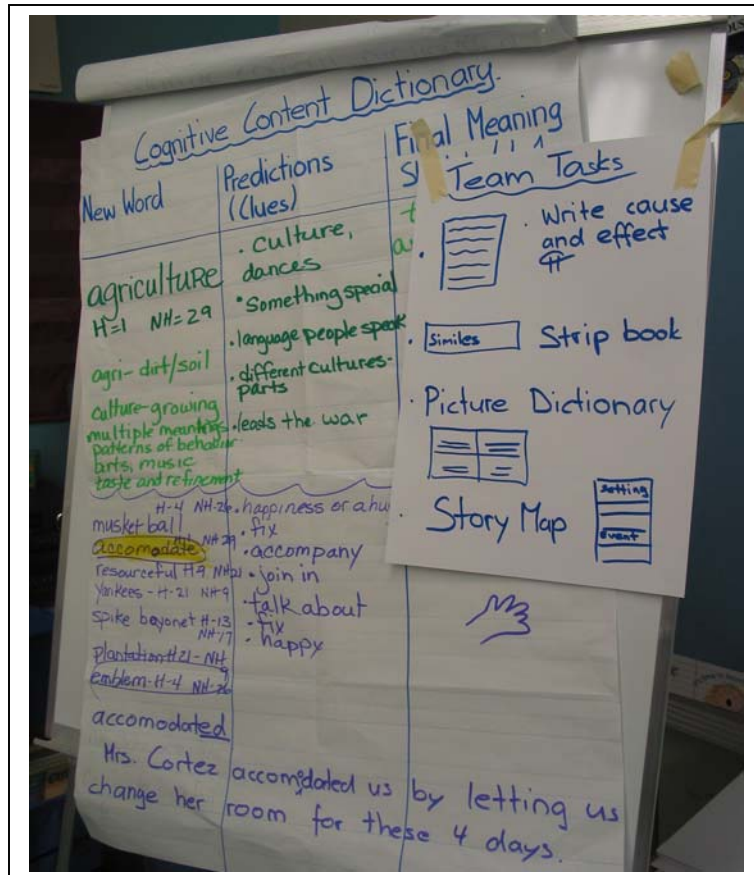 Cognitive Content Dictionary.
New Word
Predictions
(Clues)
Final Meaning
agriculture
H=1 NH=29
agri-dirt/soil
culture-growing
multiple meanings
patterns of behavior
arts, music
taste and refinement
· culture,
dances
· Something special
· language people speak
· different cultures-
parts
· leads the war
musket ball H-4 NH-26
accomodate NH 29
resourceful H9 NH21
Yankees - H-21 NH-9
spike bayonet H-13
NH-17
plantation H21- NH
9
emblem-H-4 NH-26
· happiness or a hu
· fix
· accompany
· join in
· talk about
· fix
· happy
accomodated
Mrs. Cortez accomodated us by letting us
change her room for these 4 days.
Team Tasks
· Write cause
and effect
· Similes Strip book
· Picture Dictionary
· Story Map
Setting
event